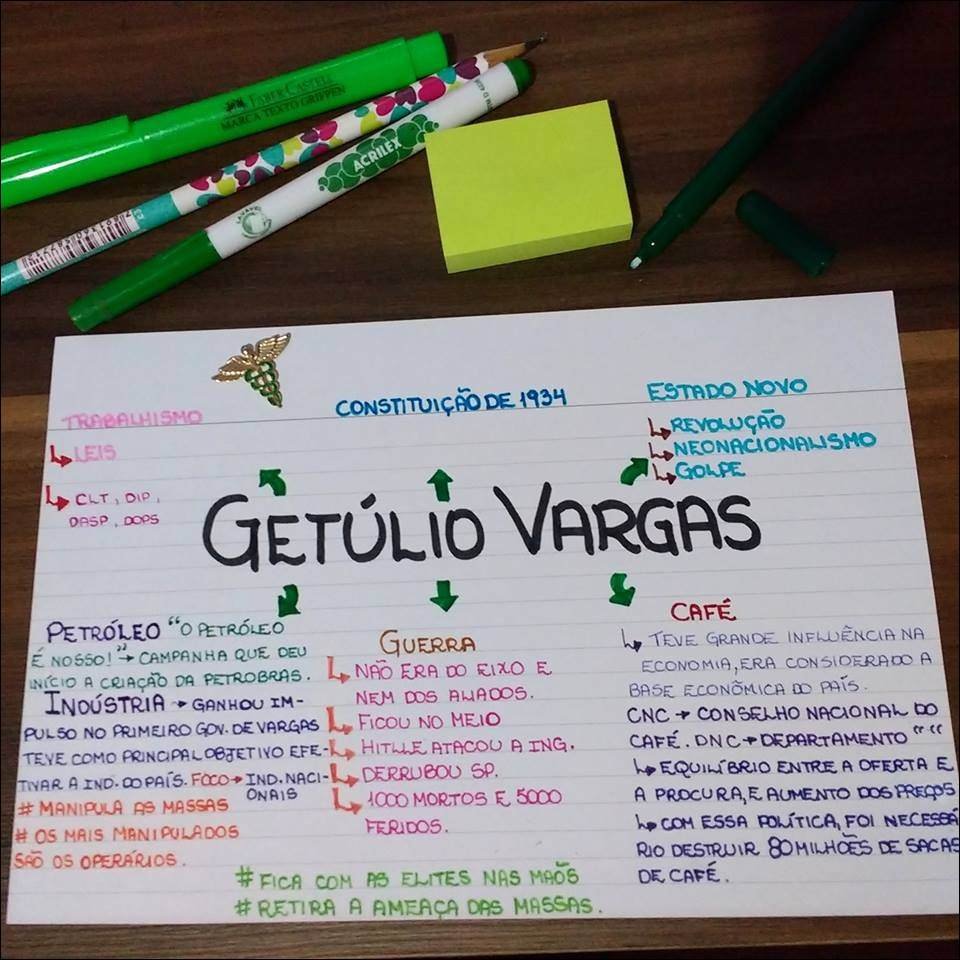 FABER-CASTELL
MARCA TEXTO GRIFFEN
ACRILEX
LAVÁVEL
TRABALHISMO
LEIS
CLT, DIP,
DASP, DOPS
CONSTITUIÇÃO DE 1934
ESTADO NOVO
REVOLUÇÃO
NEONACIONALISMO
GOLPE
GETÚLIO VARGAS
PETRÓLEO "O PETRÓLEO
É NOSSO!" → CAMPANHA QUE DEU
INÍCIO A CRIAÇÃO DA PETROBRAS.
INDÚSTRIA → GANHOU IM-
PULSO NO PRIMEIRO GOV. DE VARGAS
TEVE COMO PRINCIPAL OBJETIVO EFE-
TIVAR A IND. DO PAÍS. FOCO → IND. NACI-
ONAIS
# MANIPULA AS MASSAS
# OS MAIS MANIPULADOS
SÃO OS OPERÁRIOS.
GUERRA
NÃO ERA DO EIXO E
NEM DOS ALIADOS.
FICOU NO MEIO
HITLLE ATACOU A ING.
DERRUBOU SP.
1000 MORTOS E 5000
FERIDOS.
CAFÉ
TEVE GRANDE INFLUÊNCIA NA
ECONOMIA, ERA CONSIDERADO A
BASE ECONÔMICA DO PAÍS.
CNC → CONSELHO NACIONAL DO
CAFÉ. DNC → DEPARTAMENTO " "
EQUILÍBRIO ENTRE A OFERTA E
A PROCURA, E AUMENTO DOS PREÇOS
COM ESSA POLÍTICA, FOI NECESSÁ
RIO DESTRUIR 80 MILHÕES DE SACAS
DE CAFÉ.
# FICA COM AS ELITES NAS MÃOS
# RETIRA A AMEAÇA DAS MASSAS.